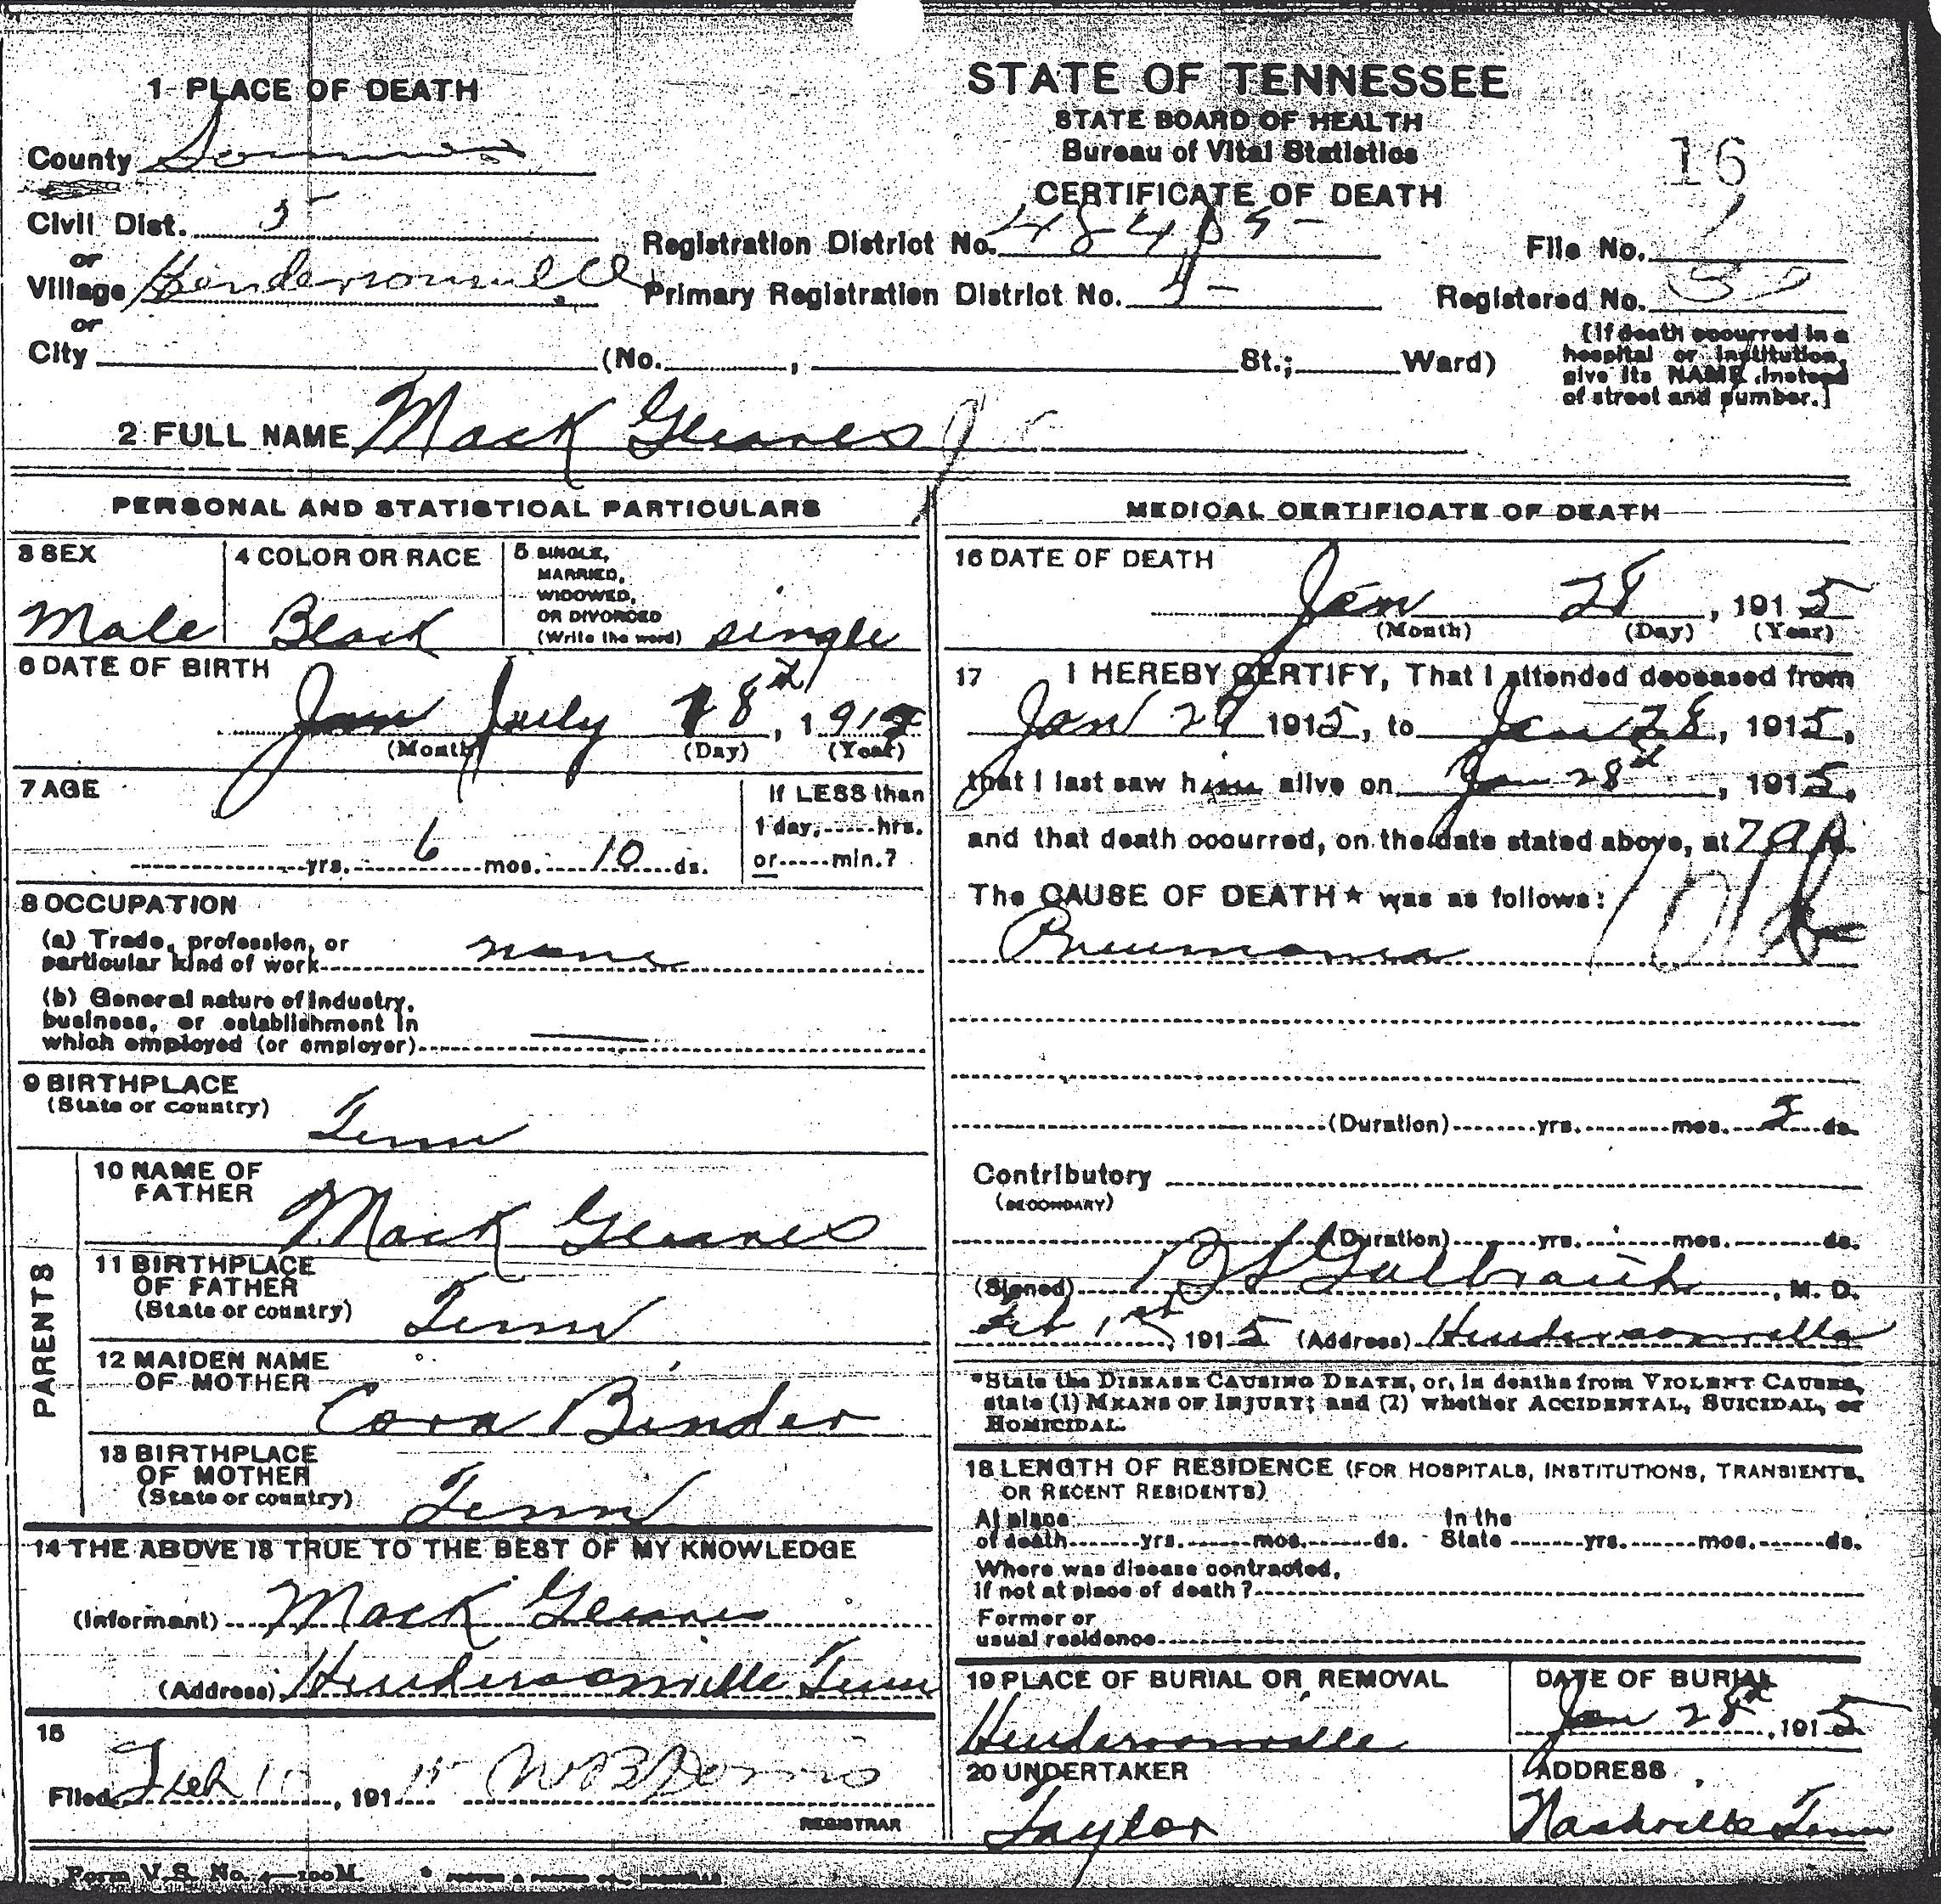 1 PLACE OF DEATH
STATE OF TENNESSEE
STATE BOARD OF HEALTH
Bureau of Vital Statistics
CERTIFICATE OF DEATH
16
County Sumner
Civil Dist. 5
or
Village Hendersonville
or
City (No. , St.; Ward)
Registration District No.
File No.
Primary Registration District No.
Registered No.
[If death occurred in a
hospital or institution,
give its NAME instead
of street and number.]
2 FULL NAME Mack Gleaves Jr
PERSONAL AND STATISTICAL PARTICULARS
3 SEX
Male
4 COLOR OR RACE
Black
5 SINGLE,
MARRIED,
WIDOWED,
OR DIVORCED
(Write the word) single
6 DATE OF BIRTH
July 18th, 191
(Month) (Day) (Year)
7 AGE
yrs. 6 mos. 10 ds.
If LESS than
1 day, hrs.
or min.?
8 OCCUPATION
(a) Trade, profession, or
particular kind of work none
(b) General nature of industry,
business, or establishment in
which employed (or employer)
9 BIRTHPLACE
(State or country)
Tenn
PARENTS
10 NAME OF
FATHER
Mack Gleaves
11 BIRTHPLACE
OF FATHER
(State or country)
Tenn
12 MAIDEN NAME
OF MOTHER
Cora Binder
13 BIRTHPLACE
OF MOTHER
(State or country)
Tenn
14 THE ABOVE IS TRUE TO THE BEST OF MY KNOWLEDGE
(Informant) Mack Gleaves
(Address) Hendersonville Tenn
15
Filed Feb 10, 191 15
REGISTRAR
MEDICAL CERTIFICATE OF DEATH
16 DATE OF DEATH
Jan 28, 1915
(Month) (Day) (Year)
17 I HEREBY CERTIFY, That I attended deceased from
Jan 1915, to Jan 28, 1915,
that I last saw him alive on Jan 28th, 1915,
and that death occurred, on the date stated above, at
The CAUSE OF DEATH* was as follows:
Pneumonia
(Duration) yrs. mos. ds.
Contributory
(SECONDARY)
(Duration) yrs. mos. ds.
(Signed) Galbraith, M. D.
Feb 1st, 1915 (Address) Hendersonville
*State the DISEASE CAUSING DEATH, or, in deaths from VIOLENT CAUSES,
state (1) MEANS OF INJURY; and (2) whether ACCIDENTAL, SUICIDAL, or
HOMICIDAL.
18 LENGTH OF RESIDENCE (FOR HOSPITALS, INSTITUTIONS, TRANSIENTS,
OR RECENT RESIDENTS)
At place
of death yrs. mos. ds.
In the
State yrs. mos. ds.
Where was disease contracted,
if not at place of death?
Former or
usual residence
19 PLACE OF BURIAL OR REMOVAL
Hendersonville
DATE OF BURIAL
Jan 28th, 1915
20 UNDERTAKER
Taylor
ADDRESS
Nashville Tenn
Form V. S. No.